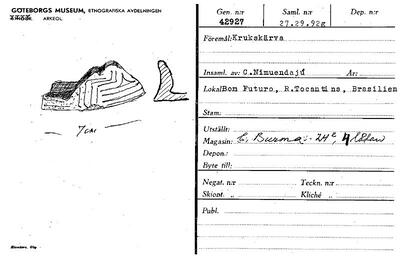 GÖTEBORGS MUSEUM, ETNOGRAFISKA AVDELNINGEN
ARKEOL.
7 cm
Gen. n:r
42927
Saml. n:r
27.29.92g
Dep. n:r
Föremål: Krukskärva
Insaml. av: C.Nimuendajú År:
Lokal Bon Futuro, R.Tocantins, Brasilien
Stam:
Utställt:
Magasin:
Depon.:
Byte till:
Negat. n:r Teckn. n:r
Skiopt. „ Kliché „
Publ.